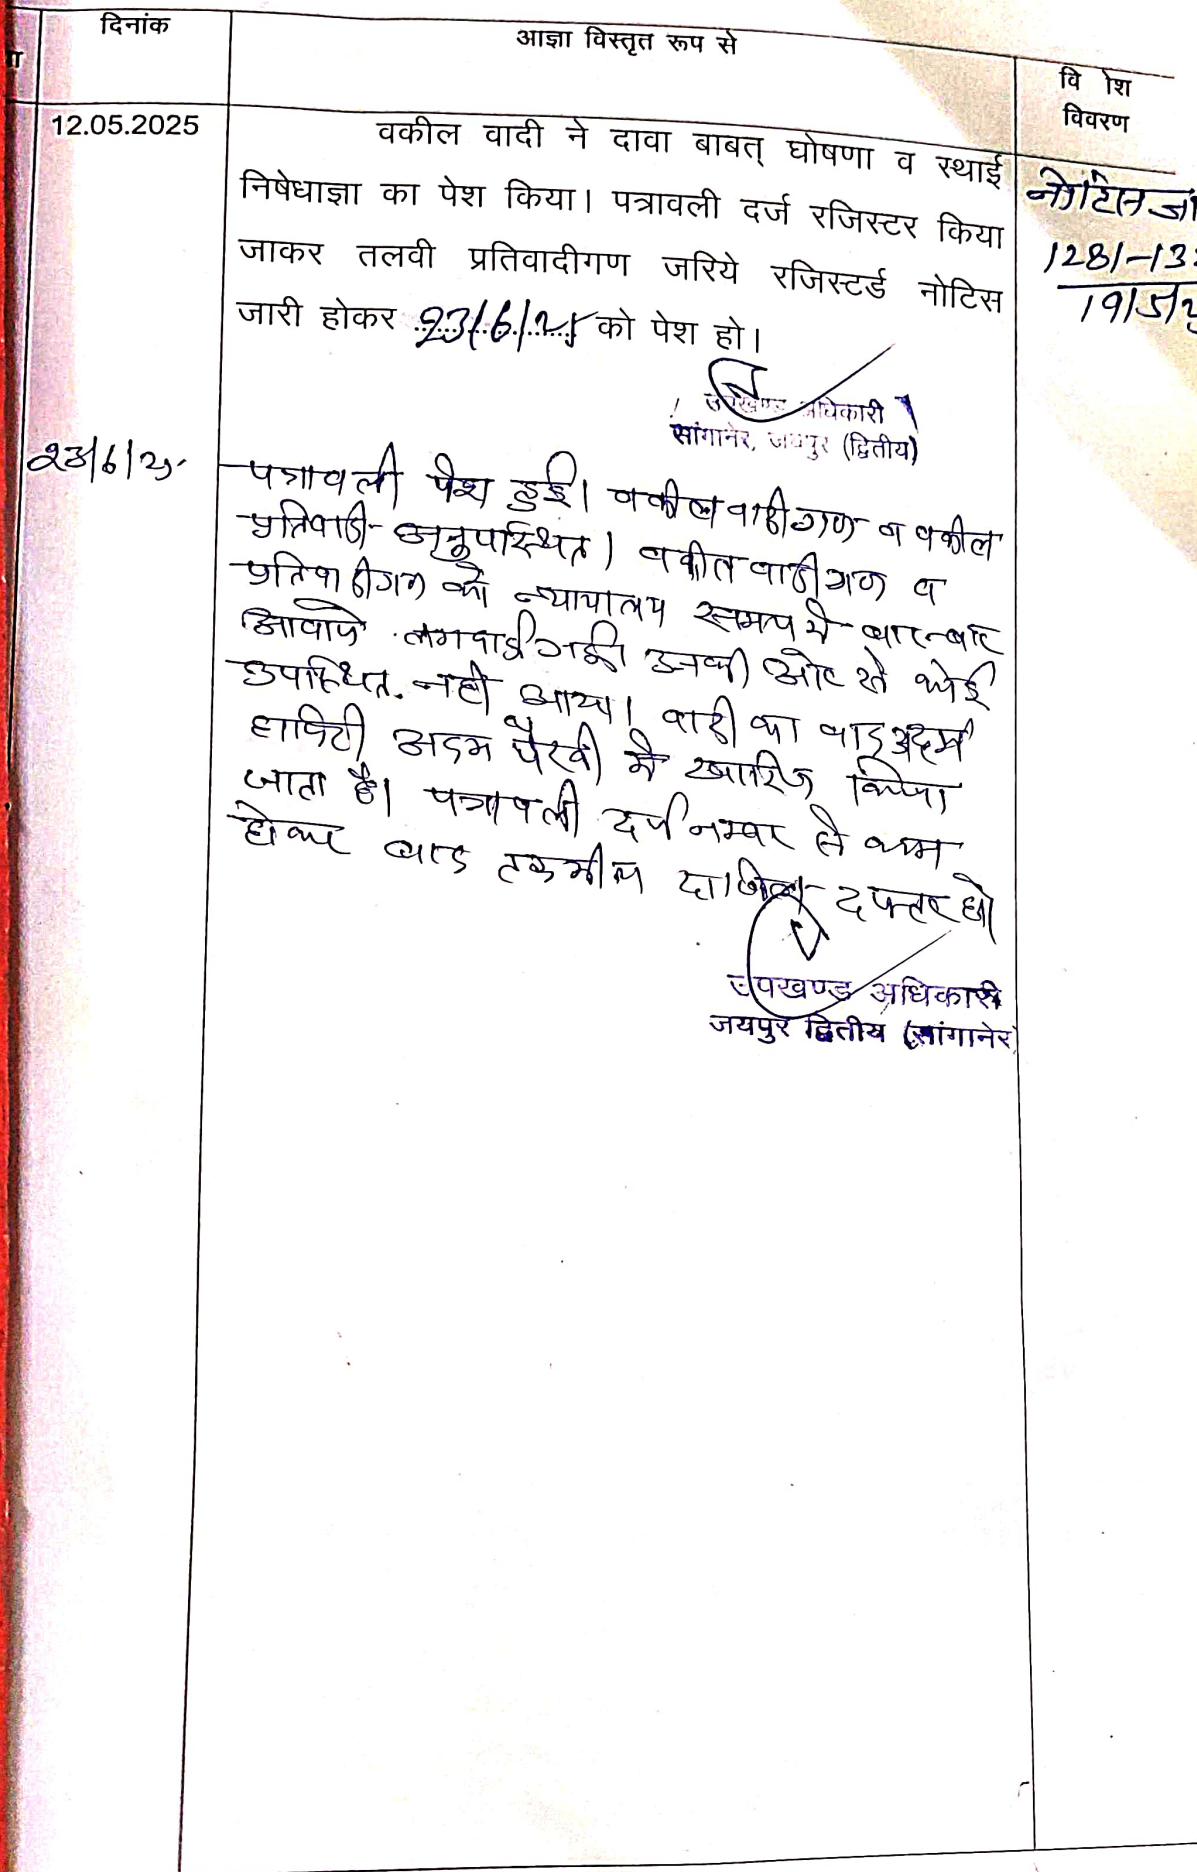 दिनांक
आज्ञा विस्तृत रूप से
वि ेश
विवरण
12.05.2025
वकील वादी ने दावा बाबत् घोषणा व स्थाई
निषेधाज्ञा का पेश किया। पत्रावली दर्ज रजिस्टर किया
जाकर तलवी प्रतिवादीगण जरिये रजिस्टर्ड नोटिस
जारी होकर 23/6/25 को पेश हो।
नोटिस जा
1281-13
19/5/2
उपखण्ड अधिकारी
सांगानेर, जयपुर (द्वितीय)
23/6/25
पत्रावली पेश हुई। वकील वादीगण व वकील
प्रतिवादी अनुपस्थित। वकील वादीगण व
प्रतिवादीगण को न्यायालय समय मे बार-बार
आवाजे लगवाई गई। उनकी ओर से कोई
उपस्थित नही आया। वादी का वाद अदम
हाजिरी अदम पैरवी मे खारिज किया
जाता है। पत्रावली दर्ज नम्बर से कम
होकर बाद तकमील दाखिल दफ्तर हो
उपखण्ड अधिकारी
जयपुर द्वितीय (सांगानेर)